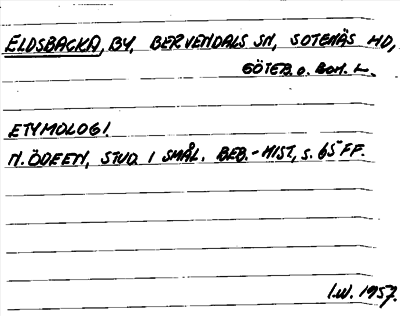 ELDSBACKA, BY, BERVENDALS SN, SOTENÄS HD,
GÖTEB. O. BOH. L.
ETYMOLOGI
N. ÖDEEN, STUD. I SMÅL. BEB.-HIST, S. 65 FF.
I.W. 1957.